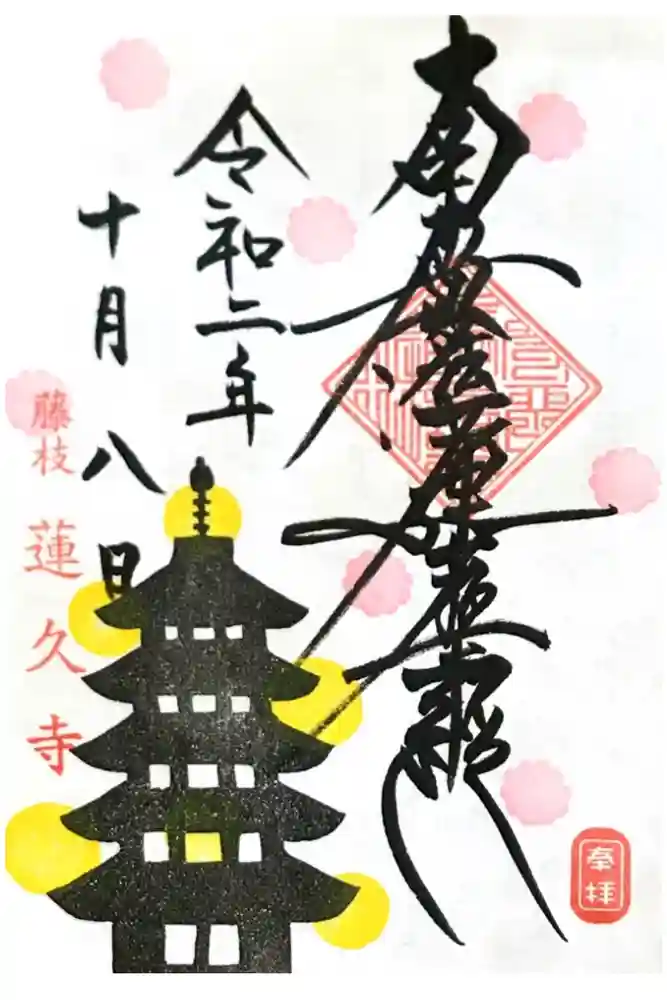 奉拝
南無妙法蓮華経
令和二年
十月八日
藤枝
蓮久寺